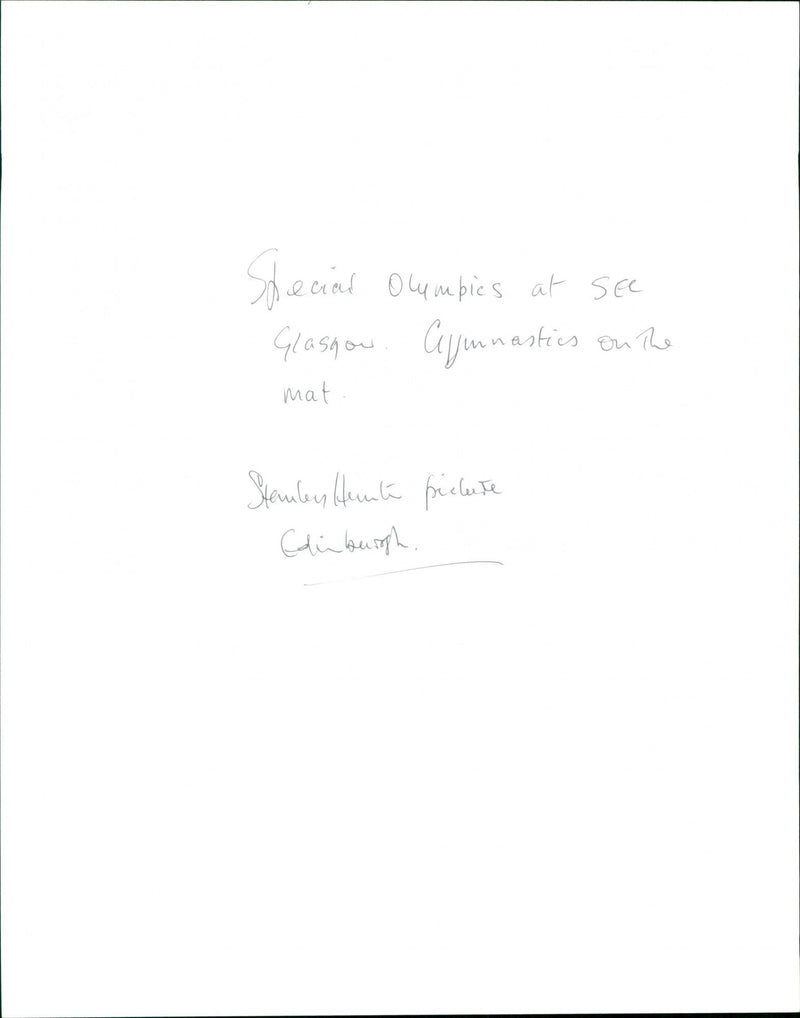 Special Olympics at SEC
Glasgow. Gymnastics on The
mat.
Stanley Hunter picture
Edinburgh.